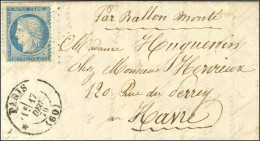 Par Ballon Monté
Madame Huguenin
chez Monsieur Hervieux
120 Rue du Perrey
au
Havre
PARIS
17
DEC
(60)